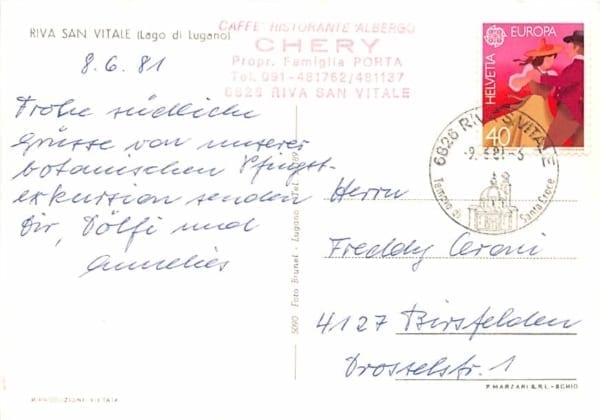 RIVA SAN VITALE (Lago di Lugano)
8.6.81
CAFFÈ RISTORANTE ALBERGO
CHERY
Propr. Famiglia PORTA
Tel. 091-481762/481137
6826 RIVA SAN VITALE
HELVETIA
EUROPA
CEPT
40
6826 RIVA S. VITALE
-9.6.81-
Tempio di Santa Croce
Frohe südliche
Grüsse von unserer
botanischen Pfingst-
exkursion senden
Dir, Dölfi und
Annelies
Herrn
Freddy Ceroni
4127 Birsfelden
Drosselstr. 1
5090 Foto Brunel - Lugano - Tel.
RIPRODUZIONE VIETATA
P. MARZARI S.R.L. - SCHIO